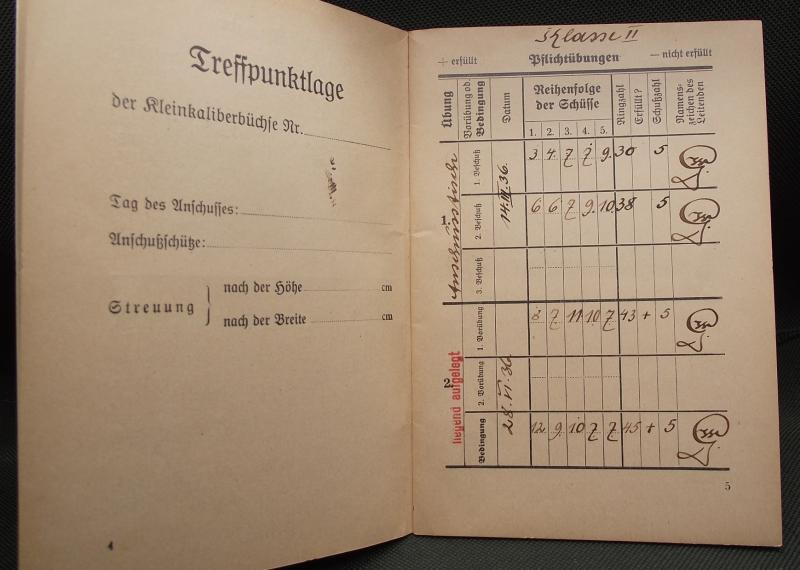 Treffpunktlage
der Kleinkaliberbüchse Nr.
Tag des Anschusses:
Anschußschütze:
Streuung
nach der Höhe cm
nach der Breite cm
4
Klasse II
+ erfüllt Pflichtübungen — nicht erfüllt
Übung
Vorübung od. Bedingung
Datum
Reihenfolge der Schüsse
1. 2. 3. 4. 5.
Ringzahl
Erfüllt?
Schußzahl
Namenszeichen des Leitenden
1. Anschusstisch
14. III. 36.
1. Beschuß 3 4 7 7 9. 30 5
2. Beschuß 6 6 7 9. 10. 38 5
3. Beschuß
2. liegend aufgelegt
28. VI. 36
1. Vorübung 8 7 11 10 7 43 + 5
2. Vorübung
Bedingung 12 9 10 7 7 45 + 5
5